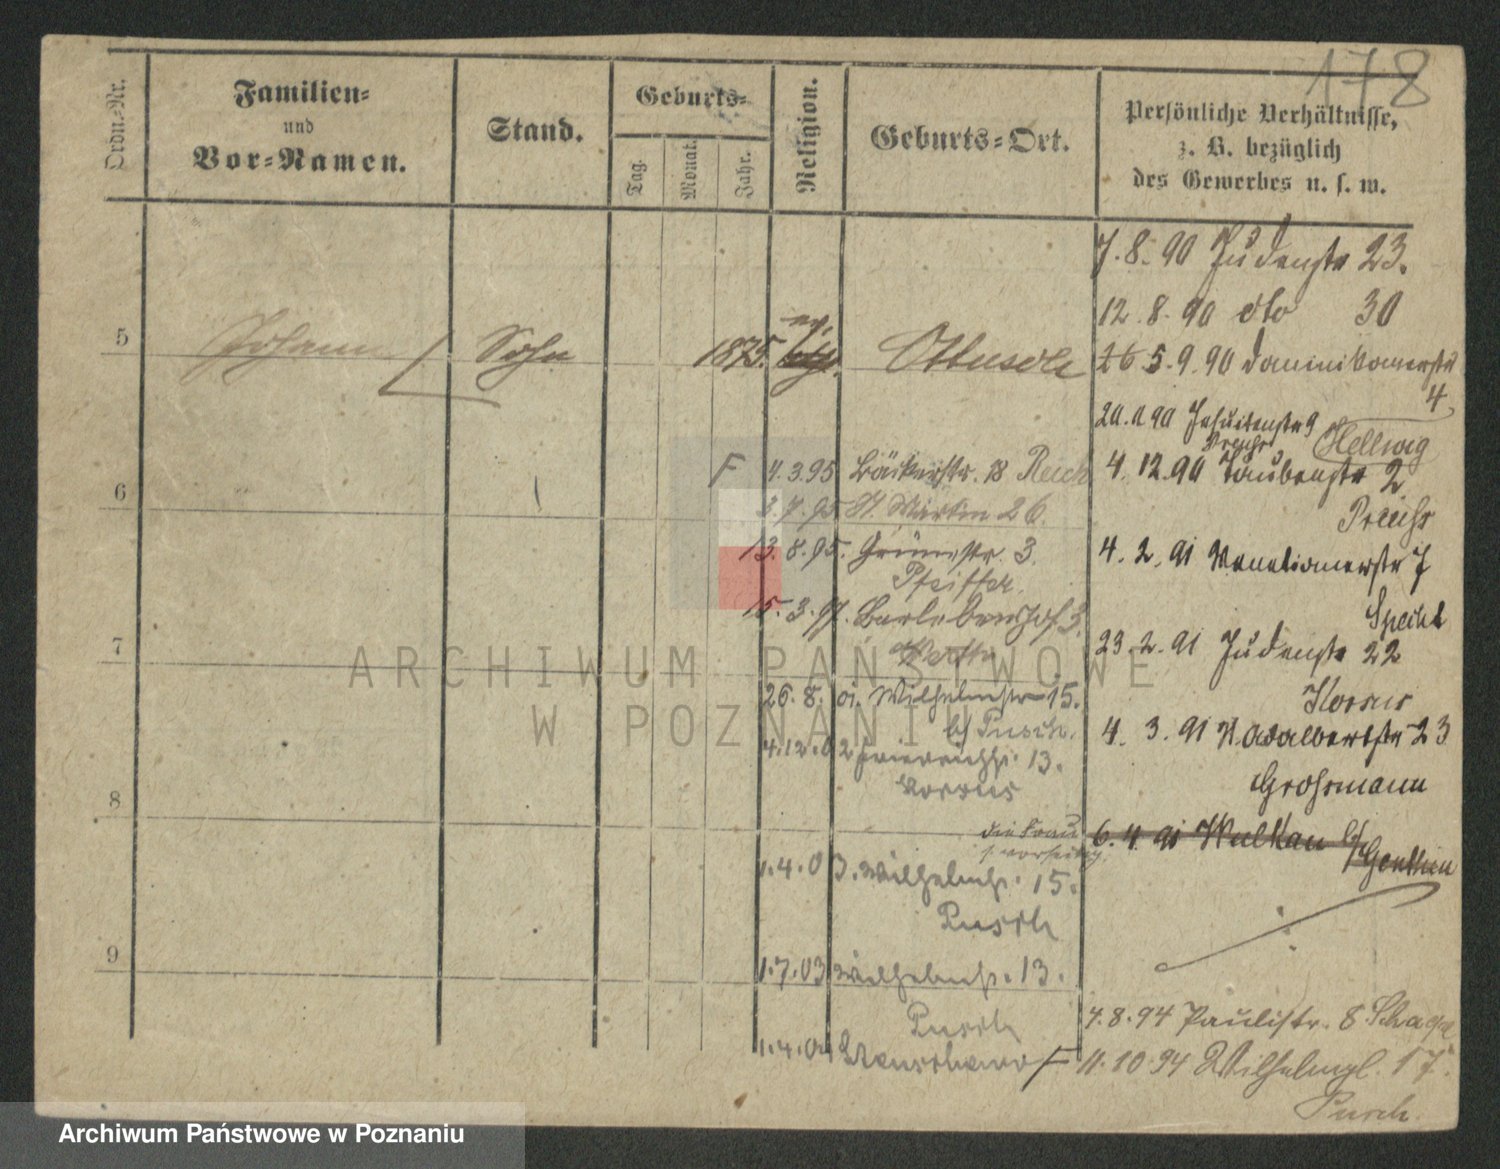 178
Ordn.-Nr.
Familien-
und
Vor-Namen.
Stand.
Geburts-
Tag.
Monat.
Jahr.
Religion.
Geburts-Ort.
Persönliche Verhältnisse,
z. B. bezüglich
des Gewerbes u. s. w.
7.8.90 Judenstr 23.
12.8.90 dto 30
5
Johann
Sohn
1875.
ev.
26 5.9.90 Dominikanerstr
4
90 Jesuitenstr 9
Hellwag
F 4.3.95 Bäckerstr. 18 Reich
4.12.90 Taubenstr 2
Preuss
6
3.7.95 St Martin 26.
13.8.95. Grünestr. 3.
Pfeiffer.
4.2.91 Venetianerstr 7
Specht
15.3.97. Bartlebenshof 3.
7
23.2.91 Judenstr 22
Korsus
26.8.01. Wilhelmstr 15.
b/ Pusch.
4.3.91 St. Adalbertstr 23
Grossmann
4.12.02 Friedrichstr. 13.
Korsus
8
die Frau
s. vorseitig
6.4.91 Wulkau b/
Genthin
1.4.03. Wilhelmstr. 15.
Pusch
9
1.7.03 Wilhelmstr. 13.
Pusch
7.8.94 Paulistr. 8
1.4.04
F 11.10.94 Wilhelmpl. 17.
Pusch.
ARCHIWUM PAŃSTWOWE
W POZNANIU
Archiwum Państwowe w Poznaniu